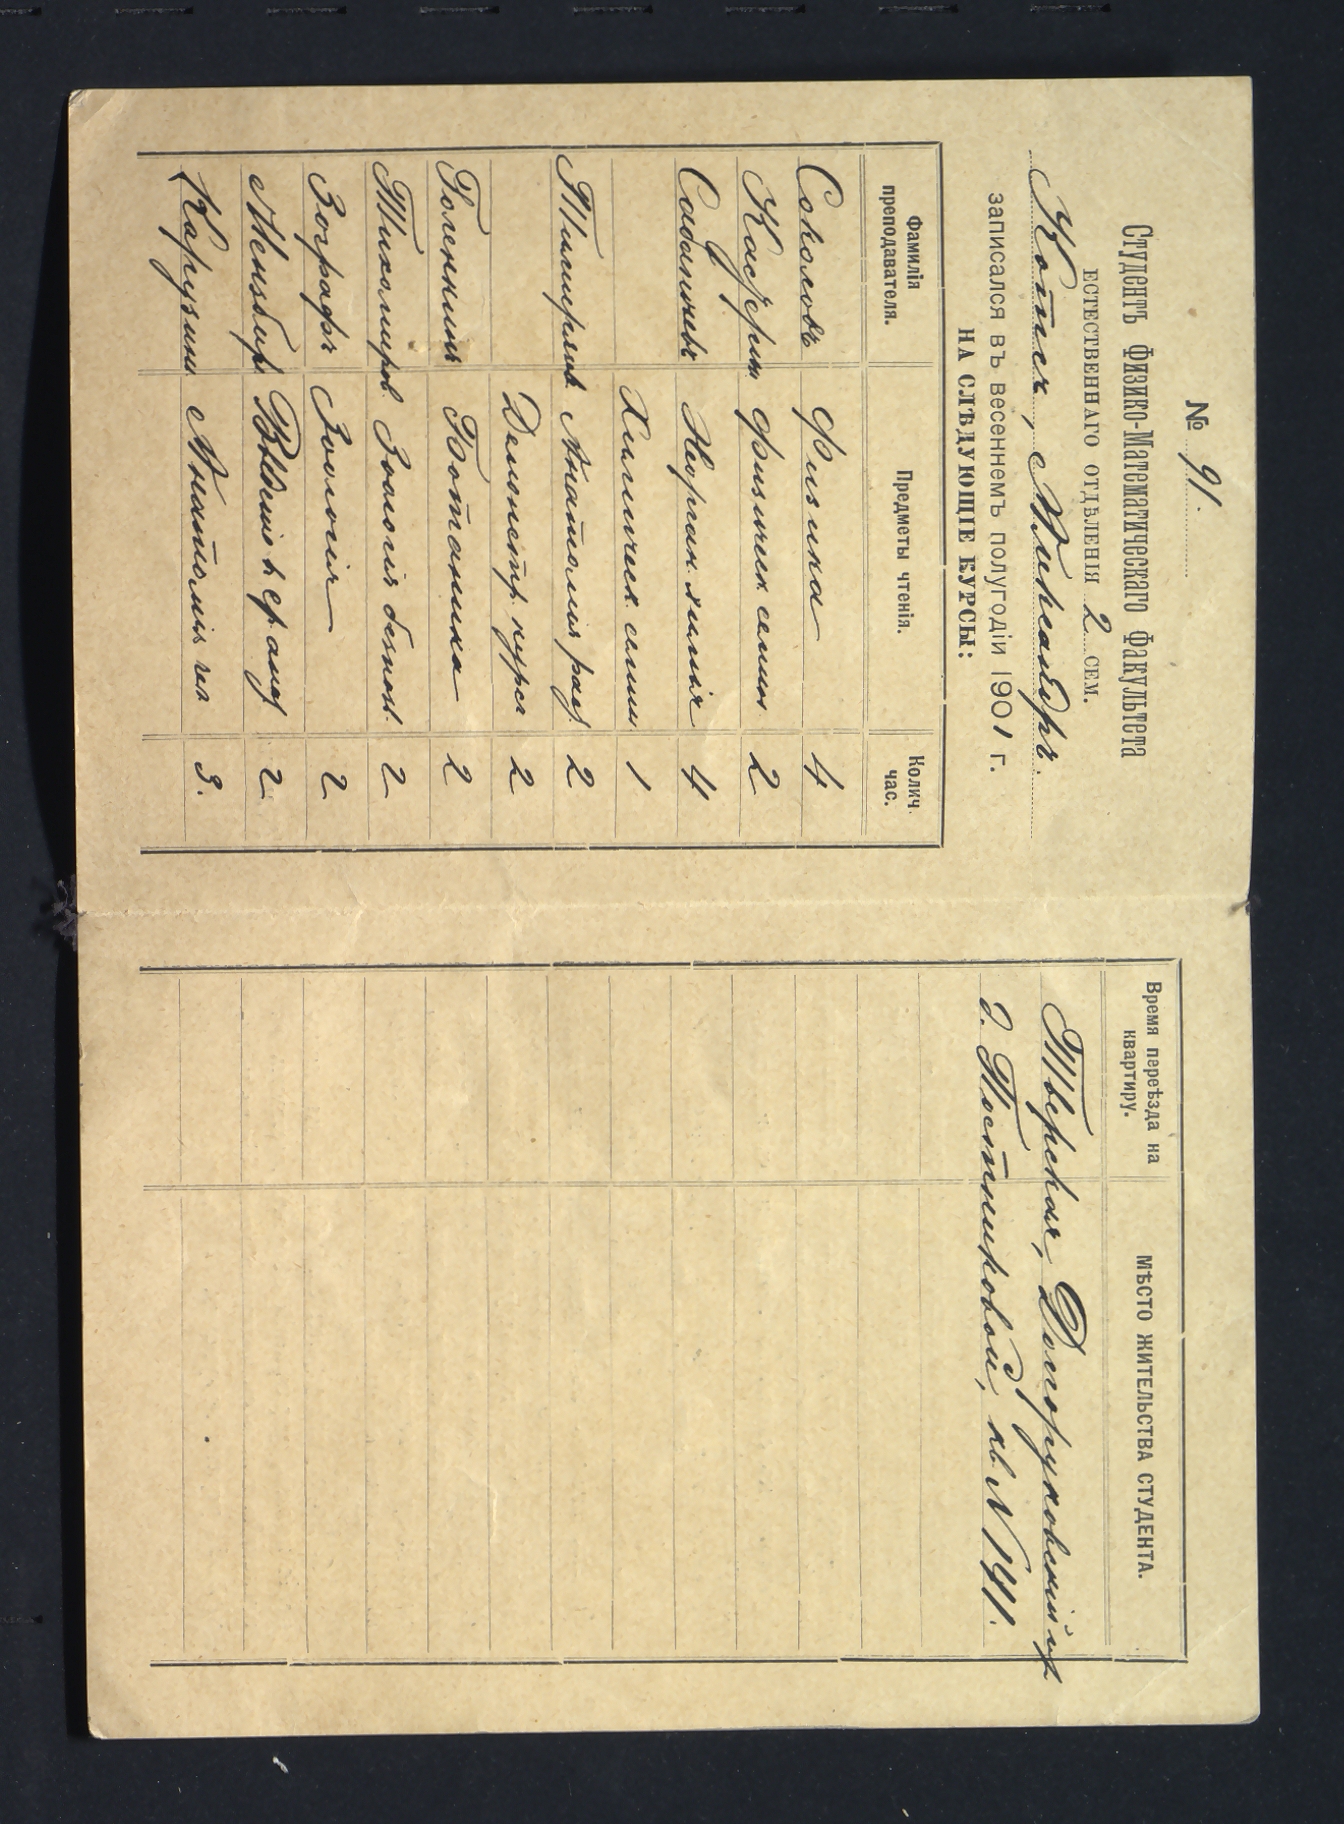 № 91.
Студентъ Физико-Математическаго Факультета
ЕСТЕСТВЕННАГО ОТДѢЛЕНІЯ 2 СЕМ.
Котсъ, Александръ.
записался въ весеннемъ полугодіи 1901 г.
НА СЛѢДУЮЩІЕ КУРСЫ:
Фамилія преподавателя. Предметы чтенія. Колич. час.
Соколовъ Физика 4
Кастерин Физическ. семин 2
Сабанѣевъ Неорган. химія 4
Химическ. семин 1
Тимирязев Анатомія раст. 2
Демонстр. курсъ 2
Голенкинъ Ботаника 2
Тихомиров Зоологія безпоз. 2
Зографъ Зоологія 2
Мензбир Введеніе в ср. анат 2
Карузинъ Анатомія чел 3.
Время переѣзда на квартиру. МѢСТО ЖИТЕЛЬСТВА СТУДЕНТА.
Тверская, Долгоруковскій пр
д. Постниковой, кв. №